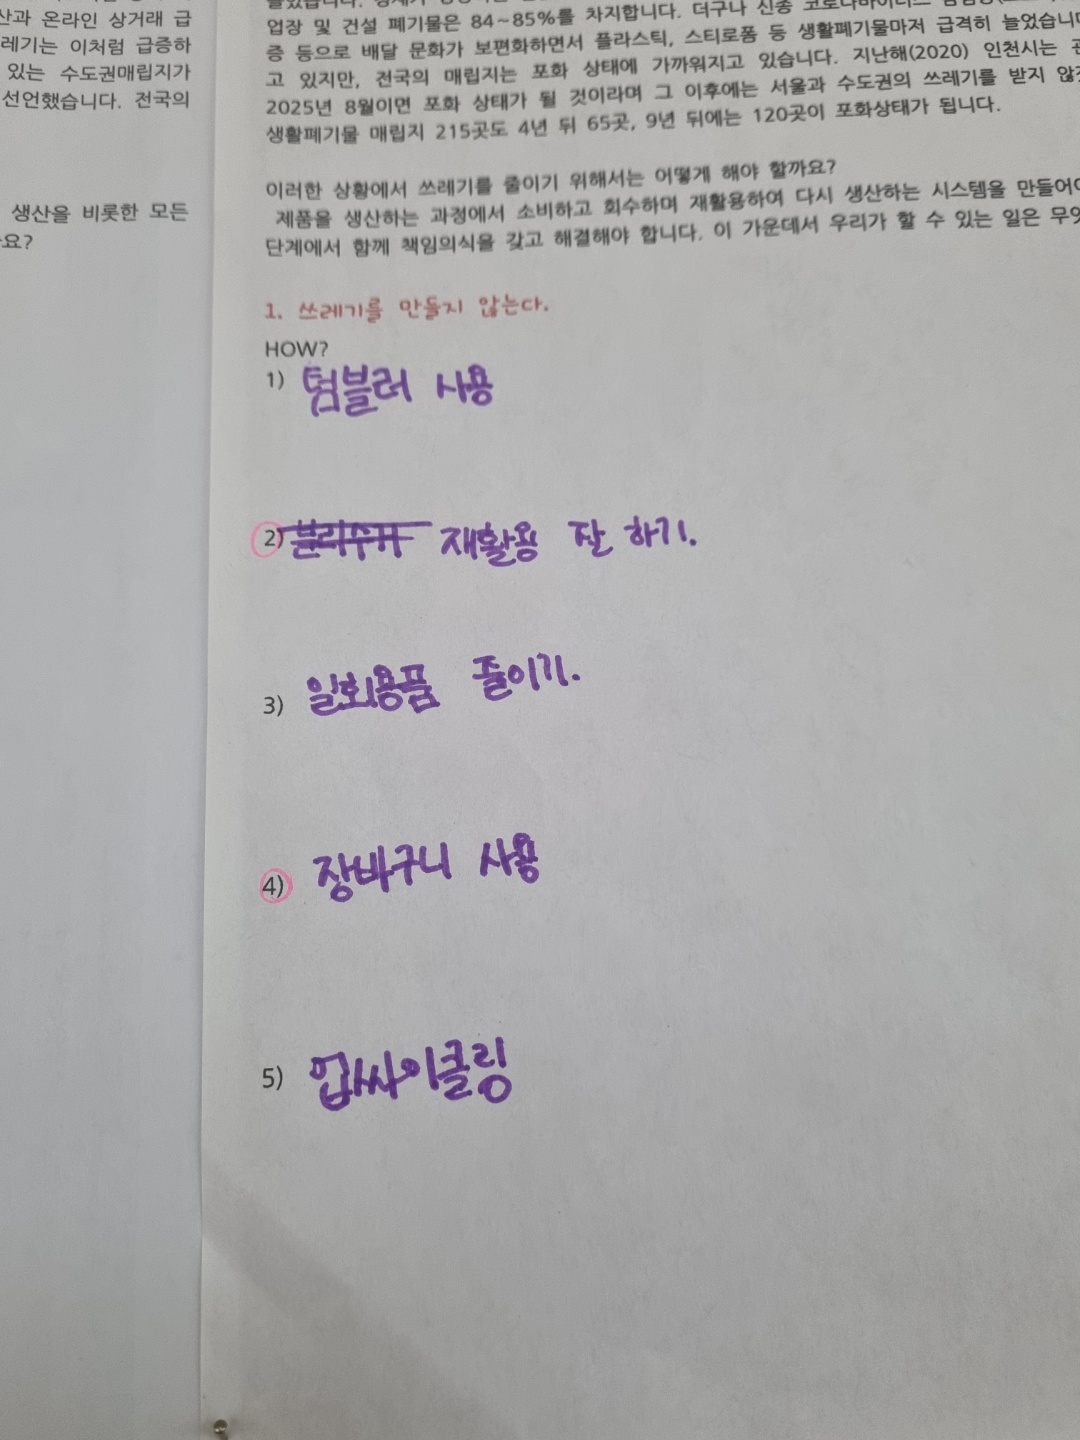 산과 온라인 상거래 급
레기는 이처럼 급증하
있는 수도권매립지가
선언했습니다. 전국의
생산을 비롯한 모든
요?
업장 및 건설 폐기물은 84~85%를 차지합니다. 더구나 신종
증 등으로 배달 문화가 보편화하면서 플라스틱, 스티로폼 등 생활폐기물마저 급격히 늘었습니다
고 있지만, 전국의 매립지는 포화 상태에 가까워지고 있습니다. 지난해(2020) 인천시는
2025년 8월이면 포화 상태가 될 것이라며 그 이후에는 서울과 수도권의 쓰레기를 받지
생활폐기물 매립지 215곳도 4년 뒤 65곳, 9년 뒤에는 120곳이 포화상태가 됩니다.
이러한 상황에서 쓰레기를 줄이기 위해서는 어떻게 해야 할까요?
제품을 생산하는 과정에서 소비하고 회수하며 재활용하여 다시 생산하는 시스템을 만들어야
단계에서 함께 책임의식을 갖고 해결해야 합니다. 이 가운데서 우리가 할 수 있는 일은
1. 쓰레기를 만들지 않는다.
HOW?
1) 텀블러 사용
2) 재활용 잘 하기.
3) 일회용품 줄이기.
4) 장바구니 사용
5) 업싸이클링